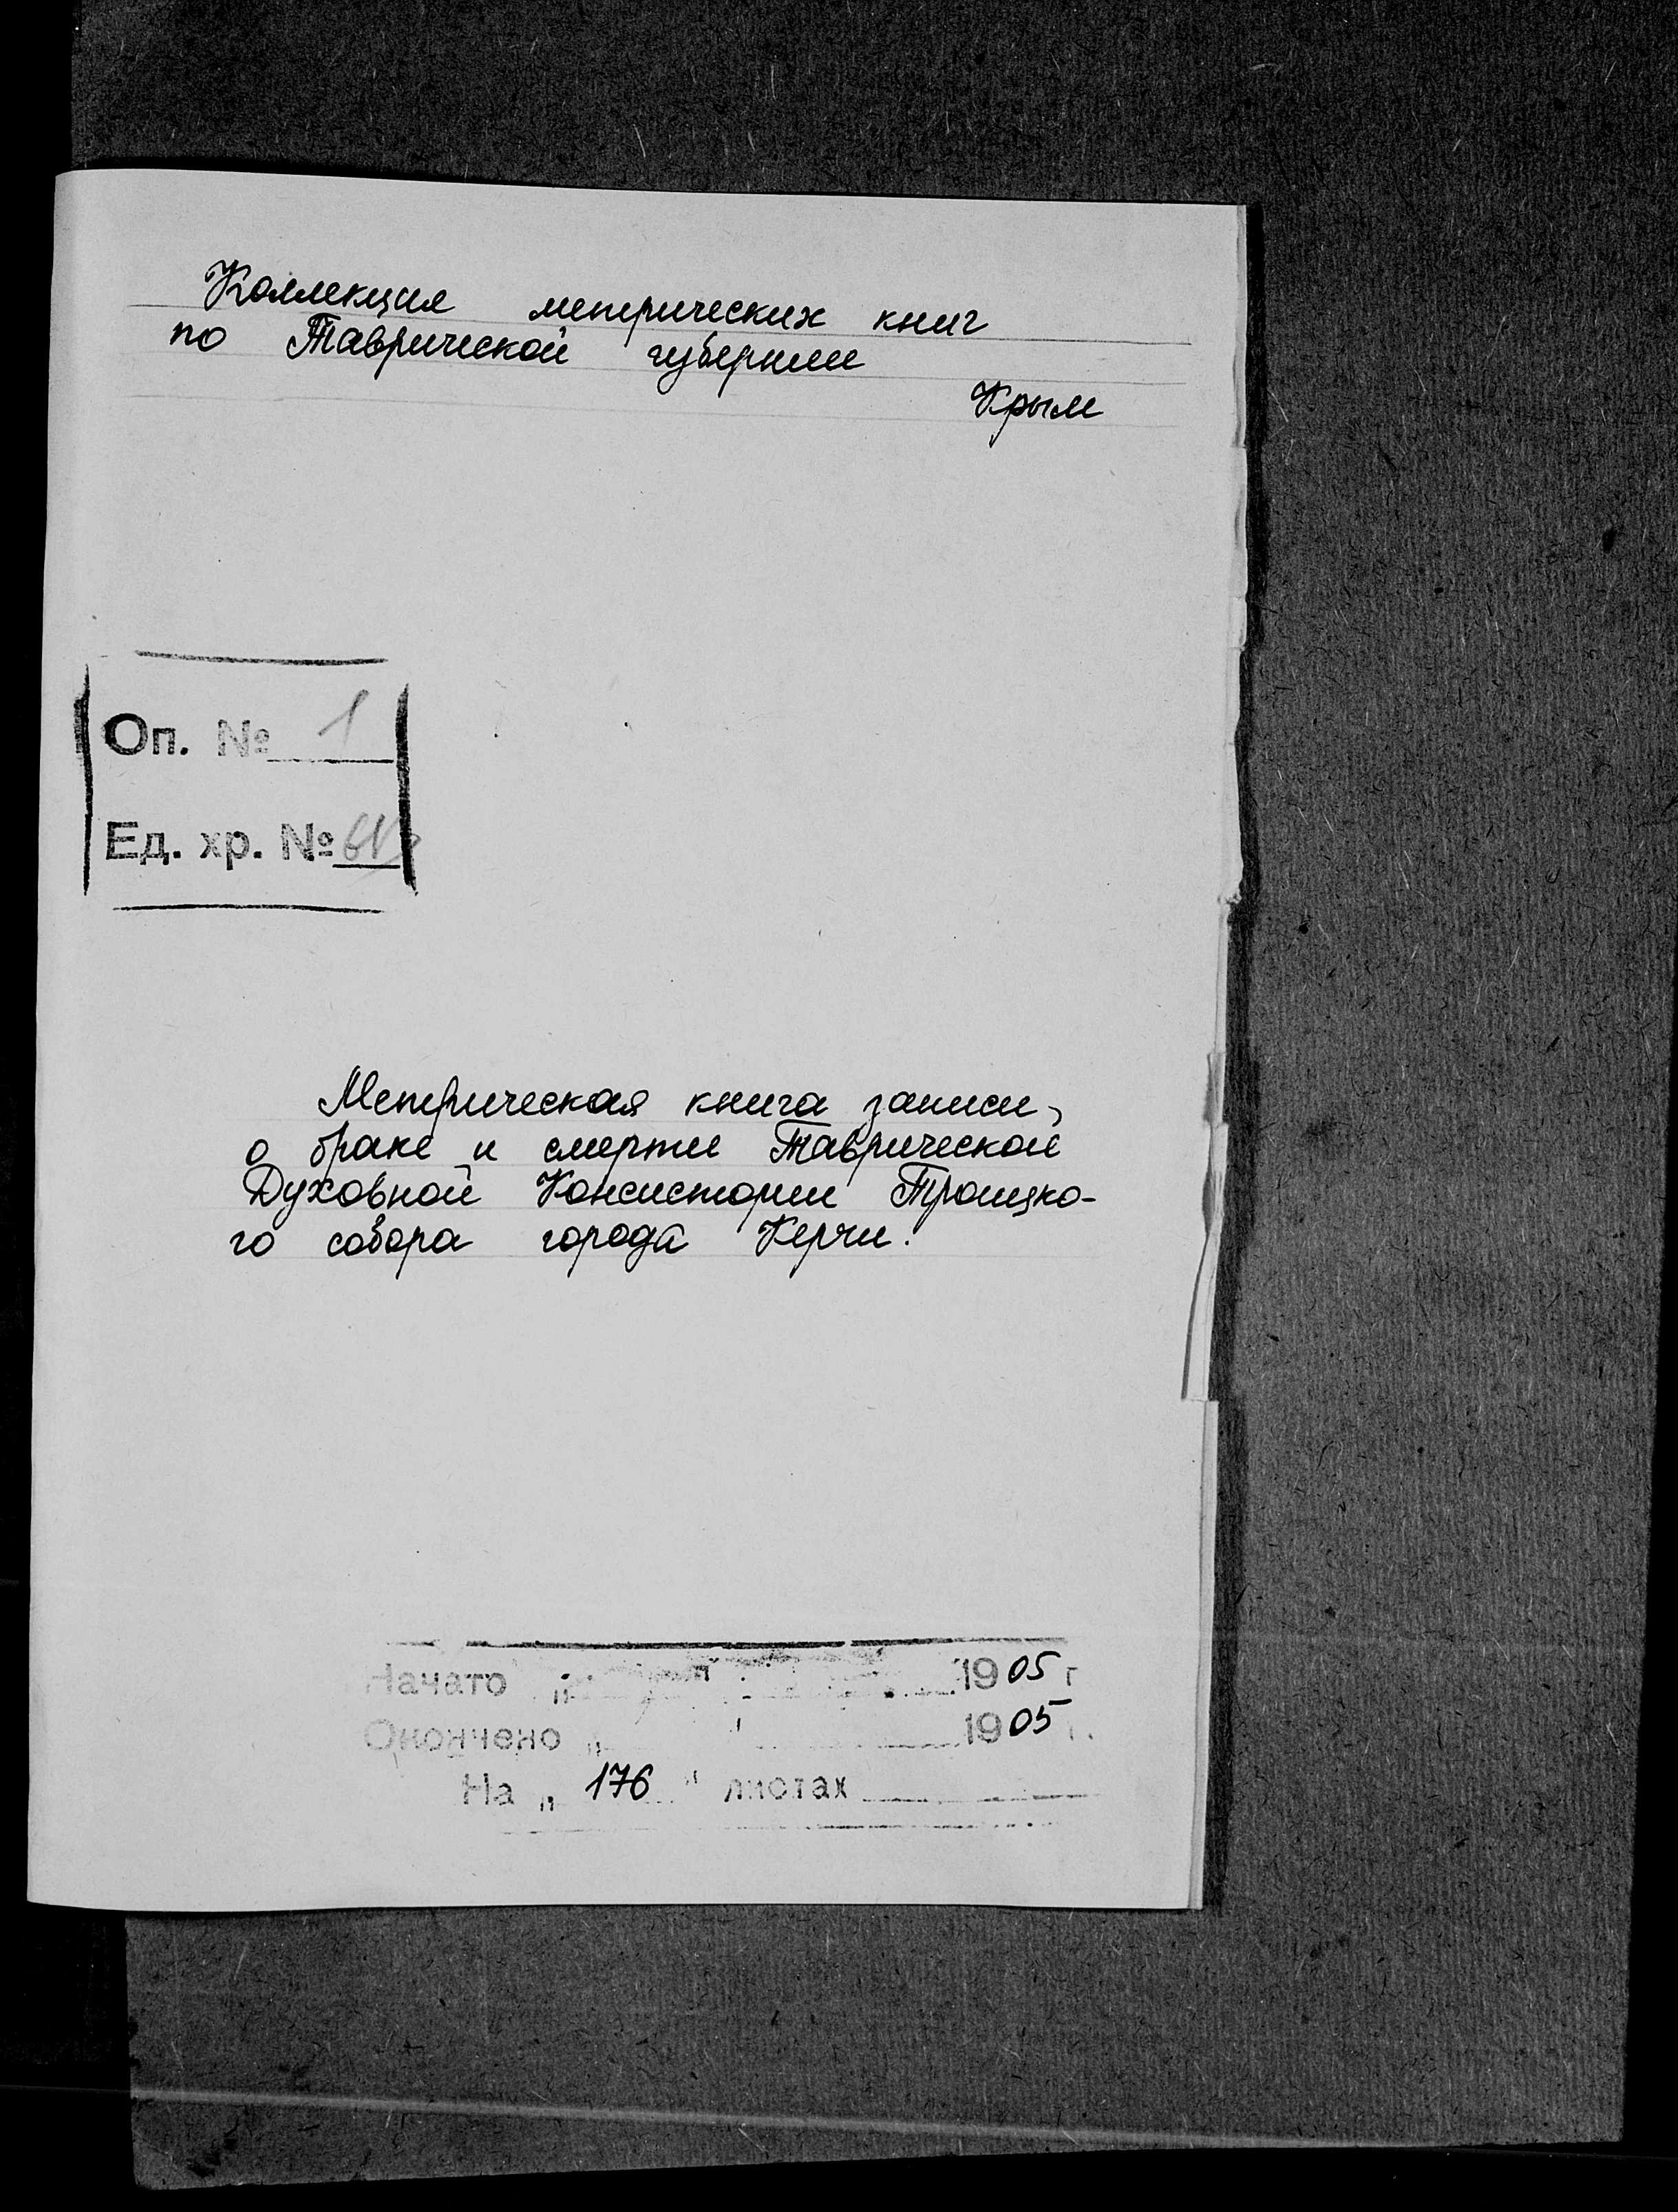 Коллекция метрических книг
по Таврической губернии
Крым
Оп. № 1
Ед. хр. №
Метрическая книга записи,
о браке и смерти Таврической
Духовной Консистории Троицко-
го собора города Керчи.
Начато „ " 1905 г
Окончено „ " 1905 г.
На „ 176 " листах